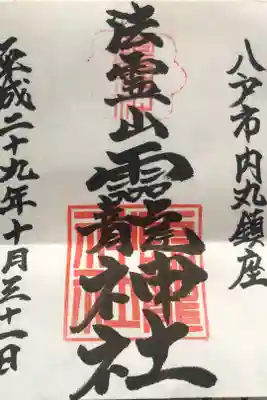 八戸市内丸鎮座
法霊山龗神社
平成二十九年十月三十一日